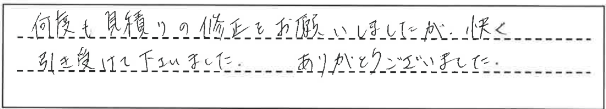 何度も見積りの修正をお願いしましたが、快く
引き受けて下さいました。 ありがとうございました。